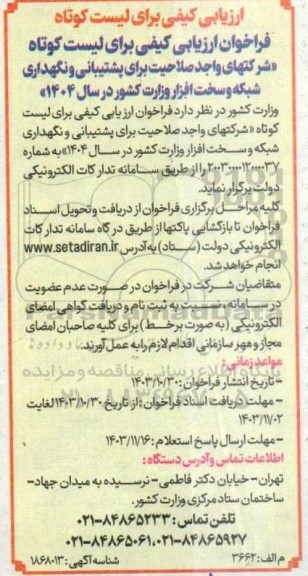 ارزیابی کیفی برای لیست کوتاه
فراخوان ارزیابی کیفی برای لیست کوتاه
«شرکتهای واجد صلاحیت برای پشتیبانی و نگهداری
شبکه و سخت افزار وزارت کشور در سال ۱۴۰۴»
وزارت کشور در نظر دارد فراخوان ارزیابی کیفی برای لیست
کوتاه «شرکتهای واجد صلاحیت برای پشتیبانی و نگهداری
شبکه و سخت افزار وزارت کشور در سال ۱۴۰۴» به شماره
را از طریق سامانه تدارکات الکترونیکی
دولت برگزار نماید.
کلیه مراحل برگزاری فراخوان از دریافت و تحویل اسناد
فراخوان تا بازگشایی پاکتها از طریق درگاه سامانه تدارکات
الکترونیکی دولت (ستاد) به آدرس www.setadiran.ir
انجام خواهد شد.
متقاضیان شرکت در فراخوان در صورت عدم عضویت
در سامانه، نسبت به ثبت نام و دریافت گواهی امضای
الکترونیکی (به صورت برخط) برای کلیه صاحبان امضای
مجاز و مهر سازمانی اقدام لازم را به عمل آورند.
مواعد زمانی:
- تاریخ انتشار فراخوان: ۱۴۰۳/۱۰/۳۰
- مهلت دریافت اسناد فراخوان: از تاریخ ۱۴۰۳/۱۰/۳۰ لغایت
۱۴۰۳/۱۱/۰۲
- مهلت ارسال پاسخ استعلام: ۱۴۰۳/۱۱/۱۶
اطلاعات تماس و آدرس دستگاه:
تهران - خیابان دکتر فاطمی - نرسیده به میدان جهاد -
ساختمان ستاد مرکزی وزارت کشور.
تلفن تماس: ۸۴۸۶۵۲۳۳-۰۲۱
۸۴۸۶۵۹۲۷-۰۲۱، ۸۴۸۶۵۰۶۱-۰۲۱
م الف: ۳۶۶۲ شناسه آگهی: ۱۸۶۸۰۱۳